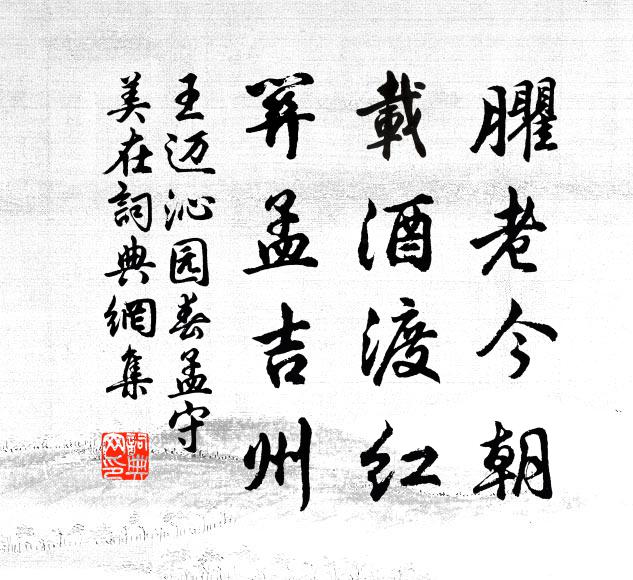 臞老今朝
載酒渡紅
孟吉州
王迈沁园春孟守
美在詞典網集
詞典
网印